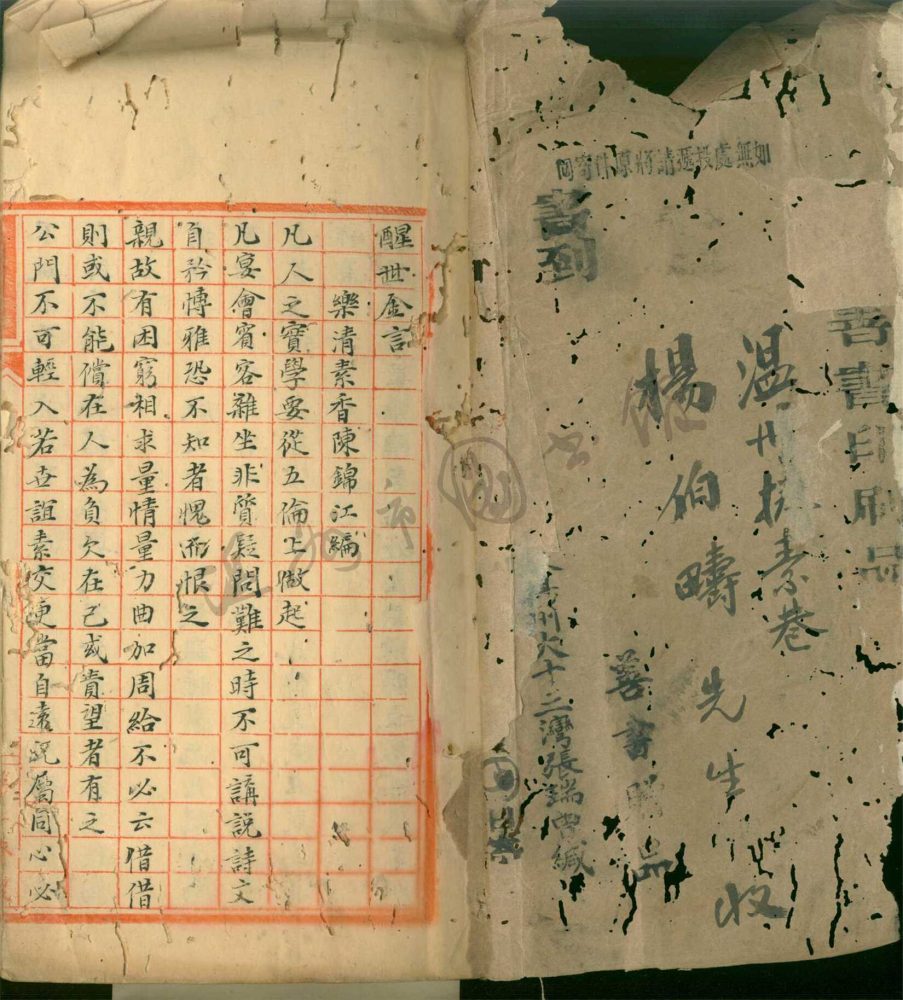 如無處投遞請將原件寄回
善書印刷品
温州 素巷
楊伯疇先生收
善書 品
州大十三灣張瑞 緘
醒世金言
樂清素香陳錦江編
凡人之實學要從五倫上做起
凡宴會賓客雜坐非質疑問難之時不可講説詩文
自矜慱雅恐不知者愧而恨之
親故有困窮相求量情量力曲加周給不必云借借
則或不能償在人為負欠在己或貴望者有之
公門不可輕入若世誼素交更當自遠既屬同心必